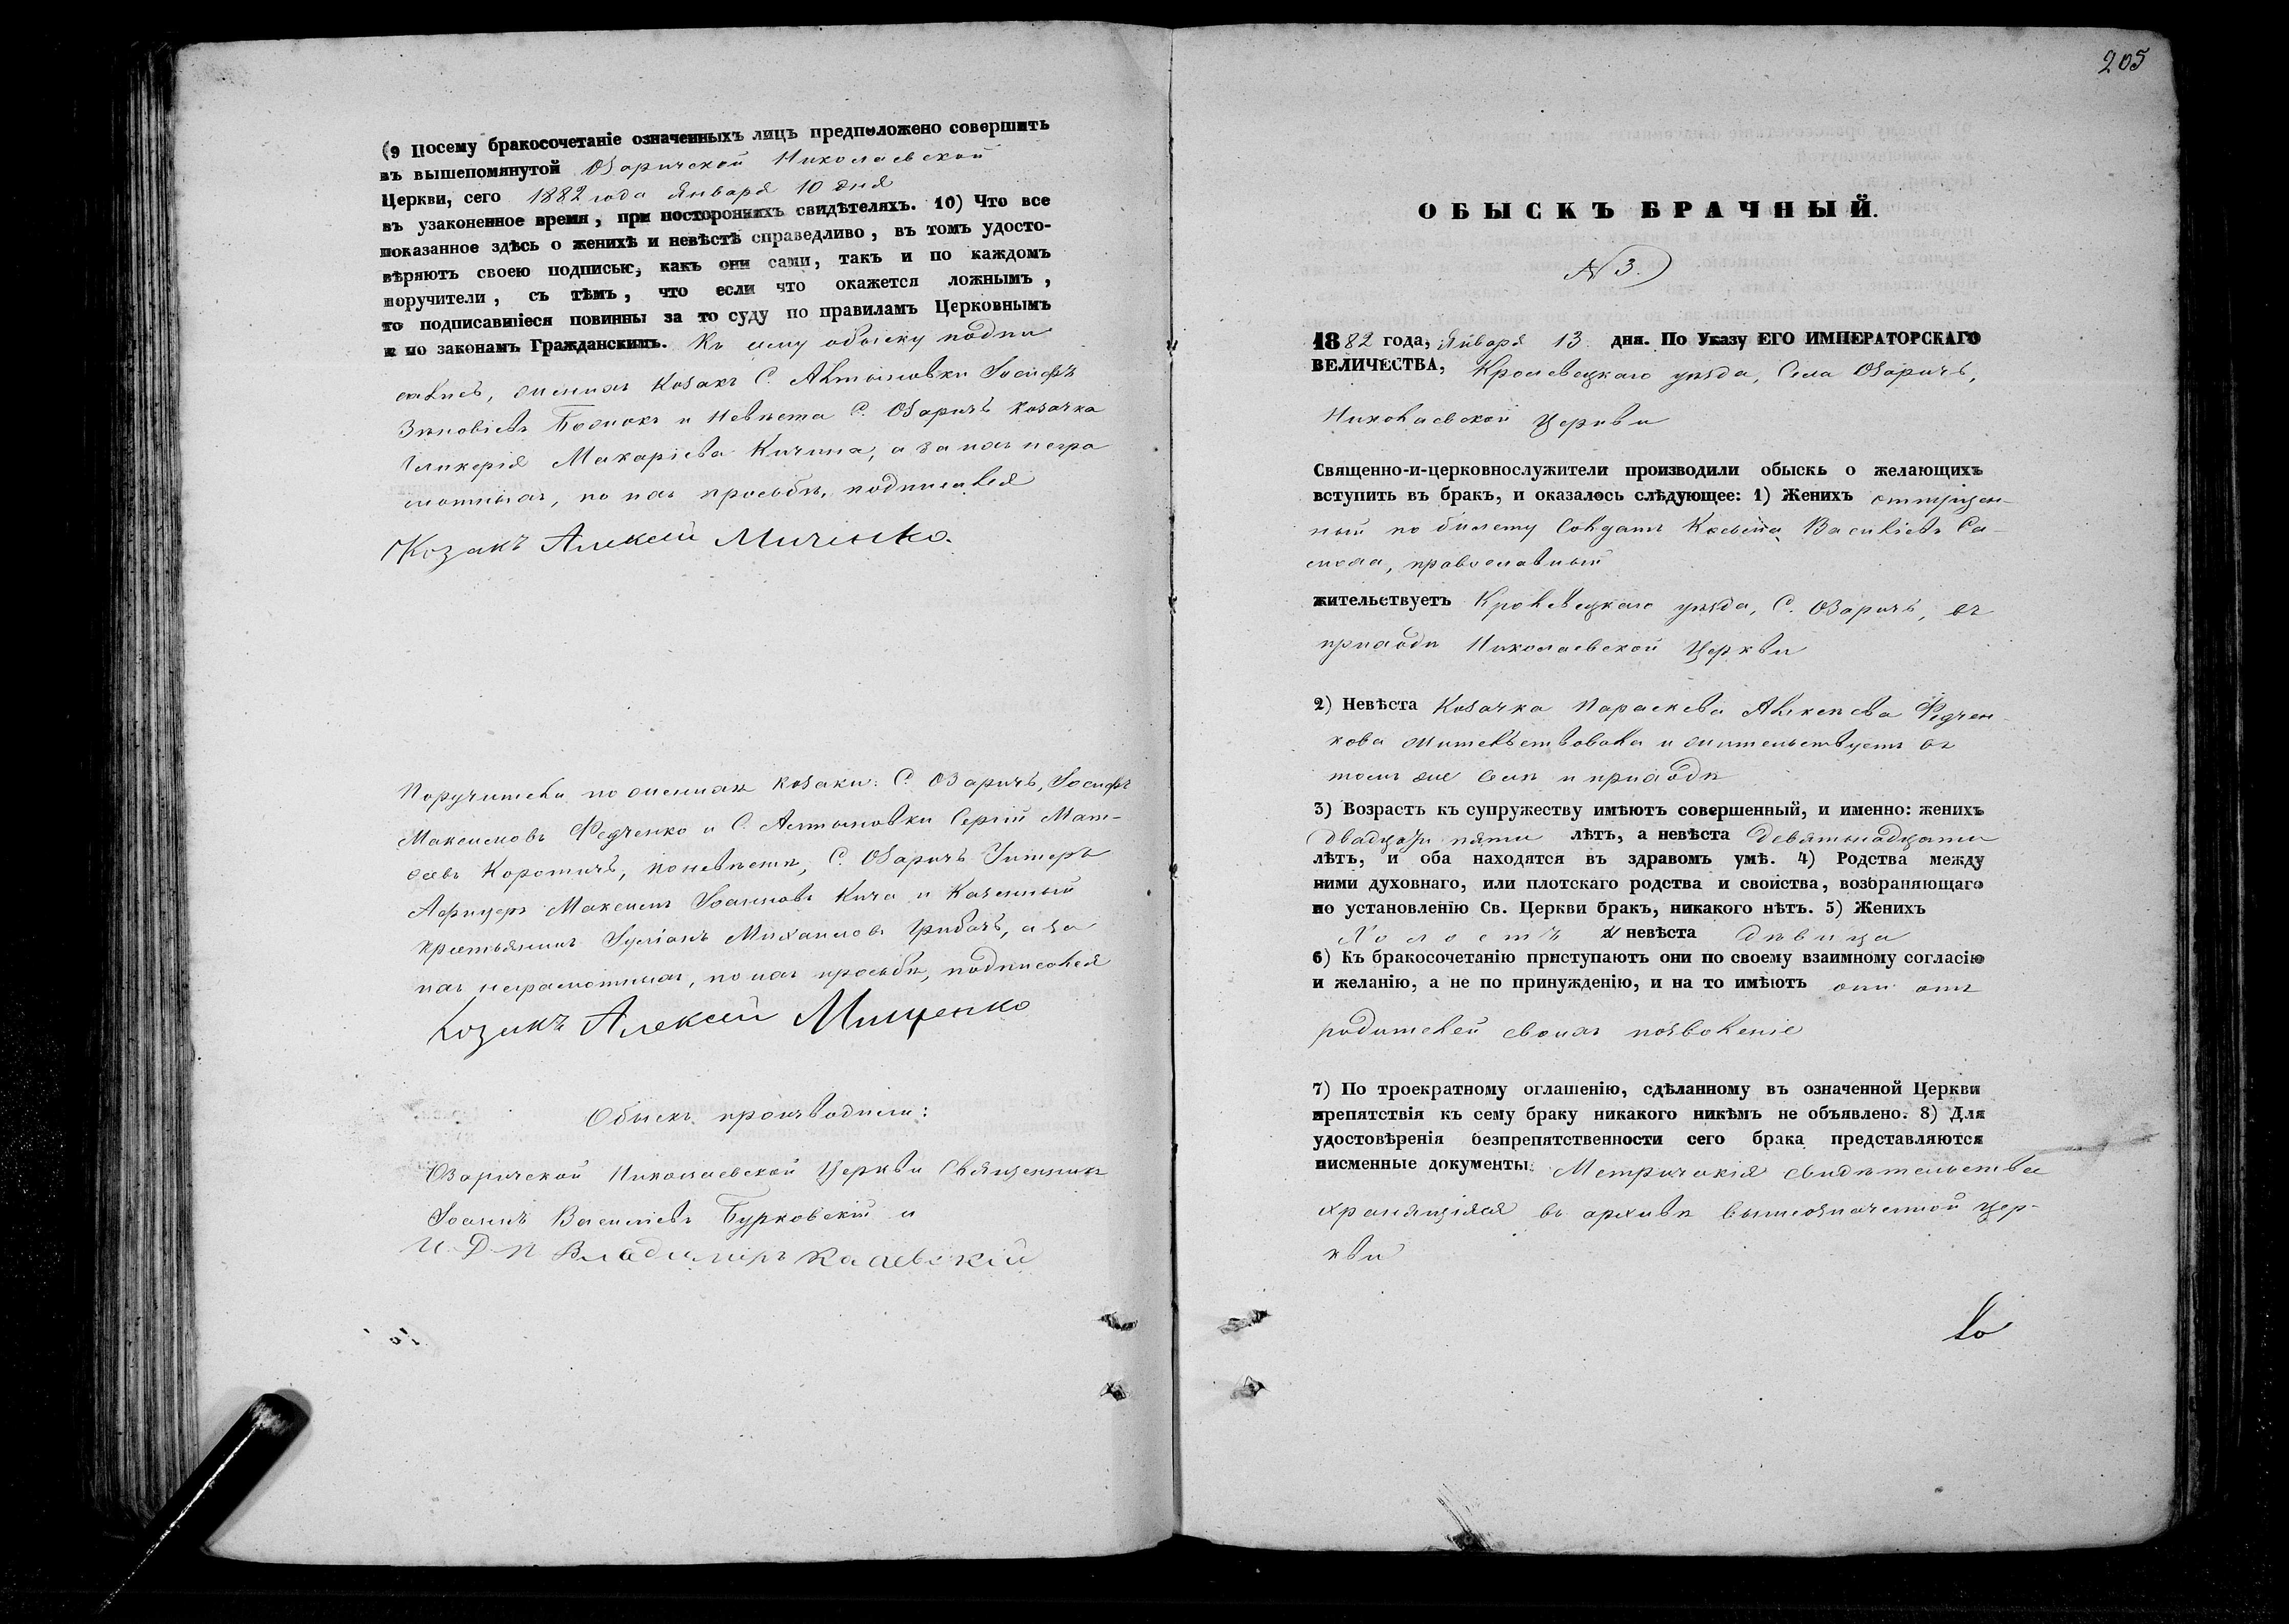 (9 Посему бракосочетаніе означенныхъ лицъ предположено совершить
въ вышепомянутой Озаричской Николаевской
Церкви, сего 1882 года Января 10 дня
въ узаконенное время, при постороннихъ свидѣтеляхъ. 10) Что все
показанное здѣсь о женихѣ и невѣстѣ справедливо, въ томъ удосто-
вѣряютъ своею подписью, какъ они сами, такъ и по каждомъ
поручители, съ тѣмъ, что если что окажется ложнымъ,
то подписавшіеся повинны за то суду по правиламъ Церковнымъ
и по законамъ Гражданскимъ. Къ сему обыску подпи
сались, женихъ Козакъ С. Алтыновки Іосифъ
Зѣновіевъ и Невѣста С. Озаричъ козачка
Гликерія Макаріева Кичина, а за нихъ негра
мотныхъ, по ихъ просьбѣ, подписался
Козакъ Алексей
Поручители по женихѣ козаки: С. Озаричъ, Іосифъ
Максимовъ Федченко и С. Алтыновки Сергій Мат-
ѳевъ Коротичъ, по невѣстѣ, С. Озаричъ Унтеръ
Афицеръ Максимъ Іоанновъ Кича и Казенный
крестьянинъ Іуліанъ Михаиловъ Грибачъ, а за
нихъ неграмотныхъ, по ихъ просьбѣ, подписался
Козакъ Алексей Мищенко
Обыскъ производили:
Озаричской Николаевской Церкви Священникъ
Іоаннъ Василіевъ Бурковскій и
И. Д. П. Владимиръ
205
ОБЫСКЪ БРАЧНЫЙ.
N 3.)
1882 года, Января 13 дня. По Указу ЕГО ИМПЕРАТОРСКАГО
ВЕЛИЧЕСТВА, Кролевецкаго уѣзда, Села Озаричъ,
Николаевской Церкви
Священно-и-церковнослужители производили обыскъ о желающихъ
вступить въ бракъ, и оказалось слѣдующее: 1) Женихъ отпущен-
ный по билету Солдатъ Косьма Василіевъ Са-
моха, православный
жительствуетъ Кролевецкаго уѣзда, С. Озаричъ, въ
приходѣ Николаевской Церкви
2) Невѣста Козачка Параскева Алексѣева Федчен-
кова жительствовала и жительствуетъ въ
томъ же селѣ и приходѣ
3) Возрастъ къ супружеству имѣютъ совершенный, и именно: женихъ
двадцати пяти лѣтъ, а невѣста девятьнадцати
лѣтъ, и оба находятся въ здравомъ умѣ. 4) Родства между
ними духовнаго, или плотскаго родства и свойства, возбраняющаго
по установленію Св. Церкви бракъ, никакого нѣтъ. 5) Женихъ
Холостъ и невѣста дѣвица
6) Къ бракосочетанію приступаютъ они по своему взаимному согласію
и желанію, а не по принужденію, и на то имѣютъ они отъ
родителей своихъ позволеніе
7) По троекратному оглашенію, сдѣланному въ означенной Церкви
препятствія къ сему браку никакого никѣмъ не объявлено. 8) Для
удостовѣренія безпрепятственности сего брака представляются
писменные документы: Метричскія свидѣтельства
хранящіяся въ архивѣ вышеозначенной цер-
кви